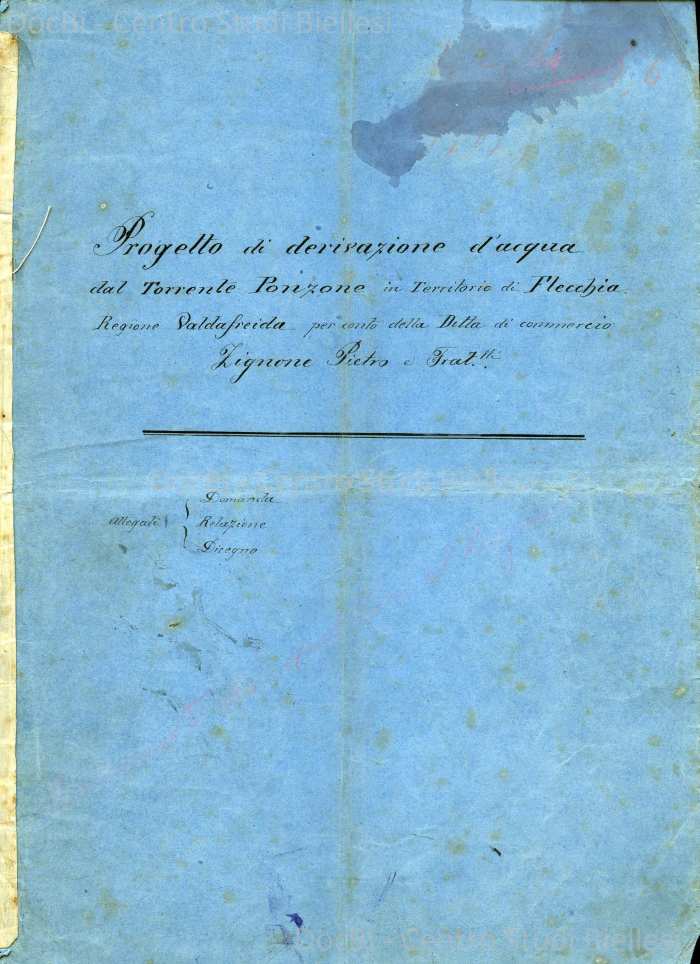 DocBL - Centro Studi Biellesi
Progetto di derivazione d'acqua
dal Torrente Ponzone in Territorio di Flecchia.
Regione Valdafreida per conto della Ditta di commercio
Zignone Pietro e Frat.lli
DocBL - Centro Studi Biellesi
Allegati
Domanda
Relazione
Disegno
DocBL - Centro Studi Biellesi